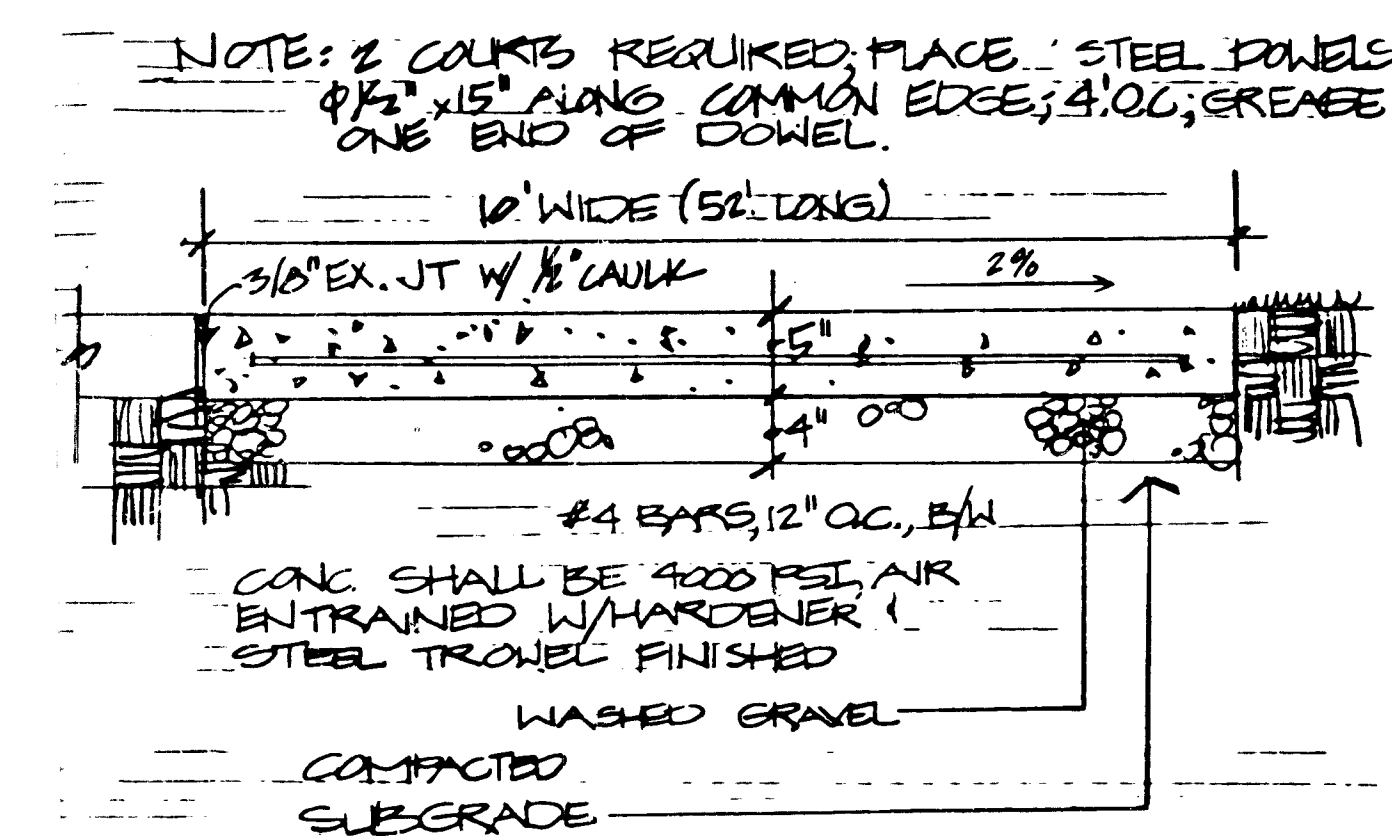 NOTE: 2 COURTS REQUIRED; PLACE STEEL DOWELS
φ 1/2" x 15" ALONG COMMON EDGE; 4' O.C.; GREASE
ONE END OF DOWEL.
10' WIDE (52' LONG)
3/8" EX. JT W/ 1/2" CAULK
2%
5"
4"
#4 BARS, 12" O.C., B/W
CONC. SHALL BE 4000 PSI, AIR
ENTRAINED W/HARDENER &
STEEL TROWEL FINISHED
WASHED GRAVEL
COMPACTED
SUBGRADE